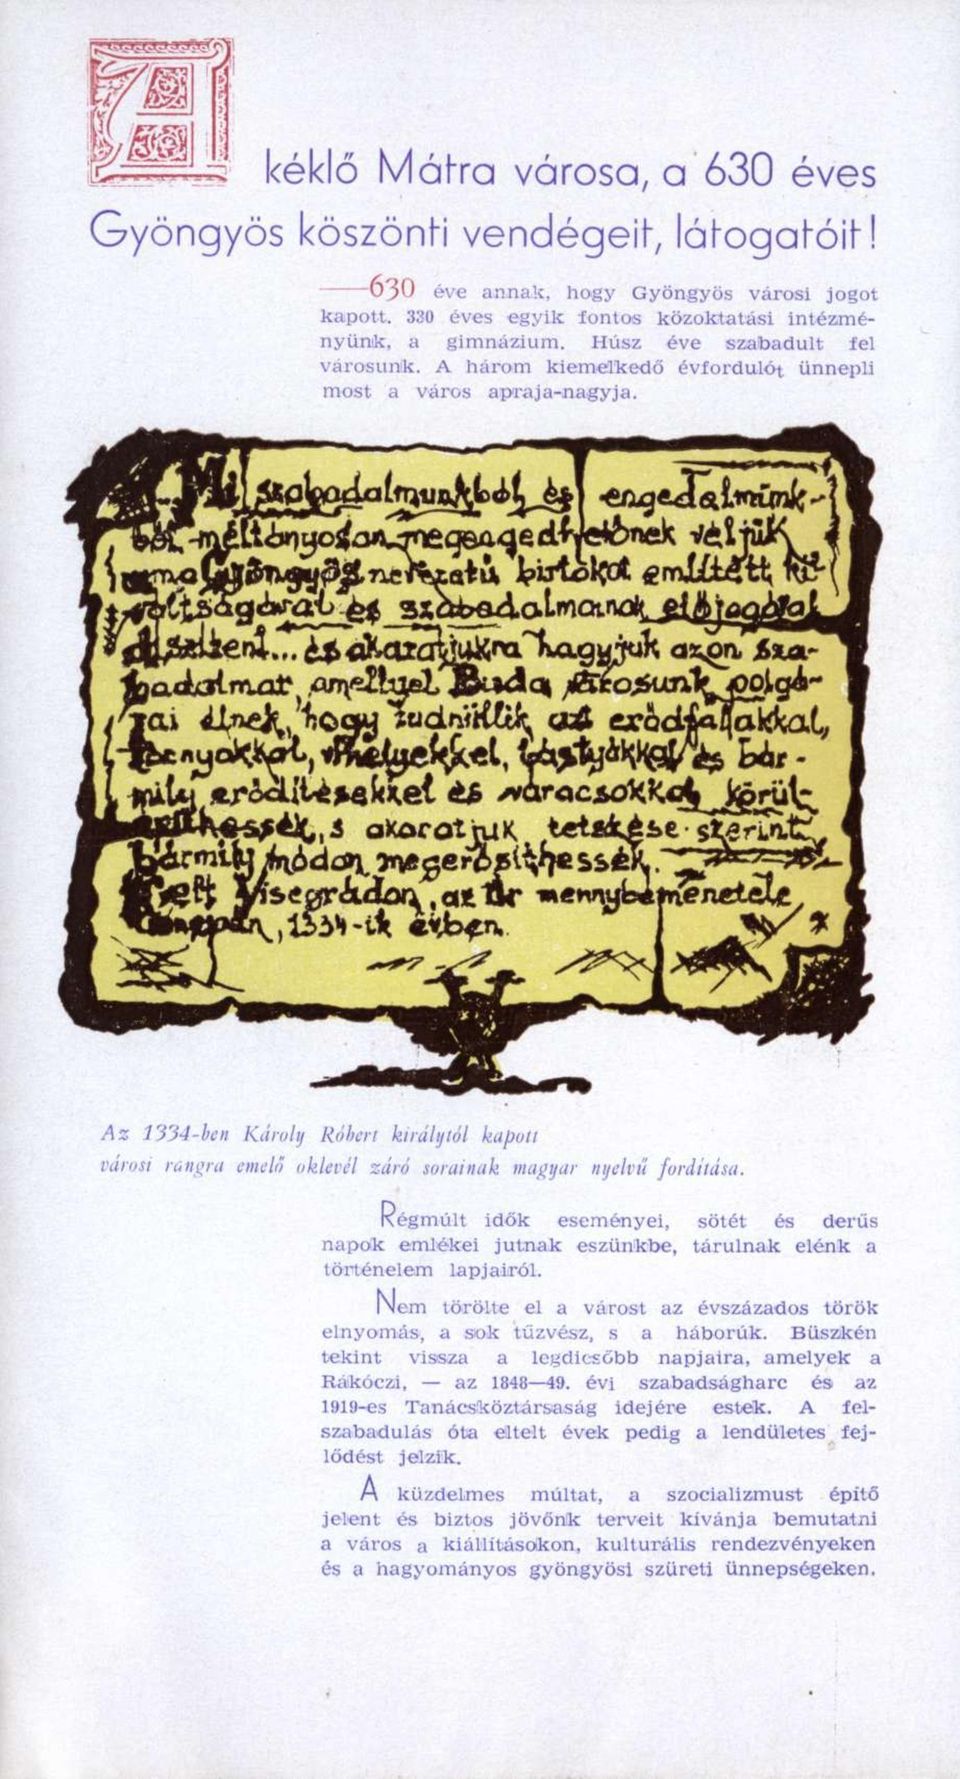 A kéklő Mátra városa, a 630 éves
Gyöngyös köszönti vendégeit, látogatóit!
630 éve annak, hogy Gyöngyös városi jogot
kapott. 330 éves egyik fontos közoktatási intézmé-
nyünk, a gimnázium. Húsz éve szabadult fel
városunk. A három kiemelkedő évfordulót ünnepli
most a város apraja-nagyja.
Mi szabadalmunkból és engedelmünk-
ből méltányosan megengedhetőnek véljük
Gyöngyös nevezetű birtokot említett ki-
váltságával és szabadalmának előjogával
díszíteni... és akaratjukra hagyjuk azon sza-
badalmat, amellyel Buda városunk polgá-
rai élnek, hogy tudniillik azt erődfalakkal,
tornyokkal, vívhelyekkel, bástyákkal és bár-
mily erődítésekkel és váracsokkal körül-
eríthessék, s akaratjuk tetszése szerint
bármily módon megerősíthessék.
Kelt Visegrádon, az Úr mennybemenetele
ünnepén, 1334-ik évben.
Az 1334-ben Károly Róbert királytól kapott
városi rangra emelő oklevél záró sorainak magyar nyelvű fordítása.
Régmúlt idők eseményei, sötét és derűs
napok emlékei jutnak eszünkbe, tárulnak elénk a
történelem lapjairól.
Nem törölte el a várost az évszázados török
elnyomás, a sok tűzvész, s a háborúk. Büszkén
tekint vissza a legdicsőbb napjaira, amelyek a
Rákóczi, — az 1848—49. évi szabadságharc és az
1919-es Tanácsköztársaság idejére estek. A fel-
szabadulás óta eltelt évek pedig a lendületes fej-
lődést jelzik.
A küzdelmes múltat, a szocializmust építő
jelent és biztos jövőnk terveit kívánja bemutatni
a város a kiállításokon, kulturális rendezvényeken
és a hagyományos gyöngyösi szüreti ünnepségeken.